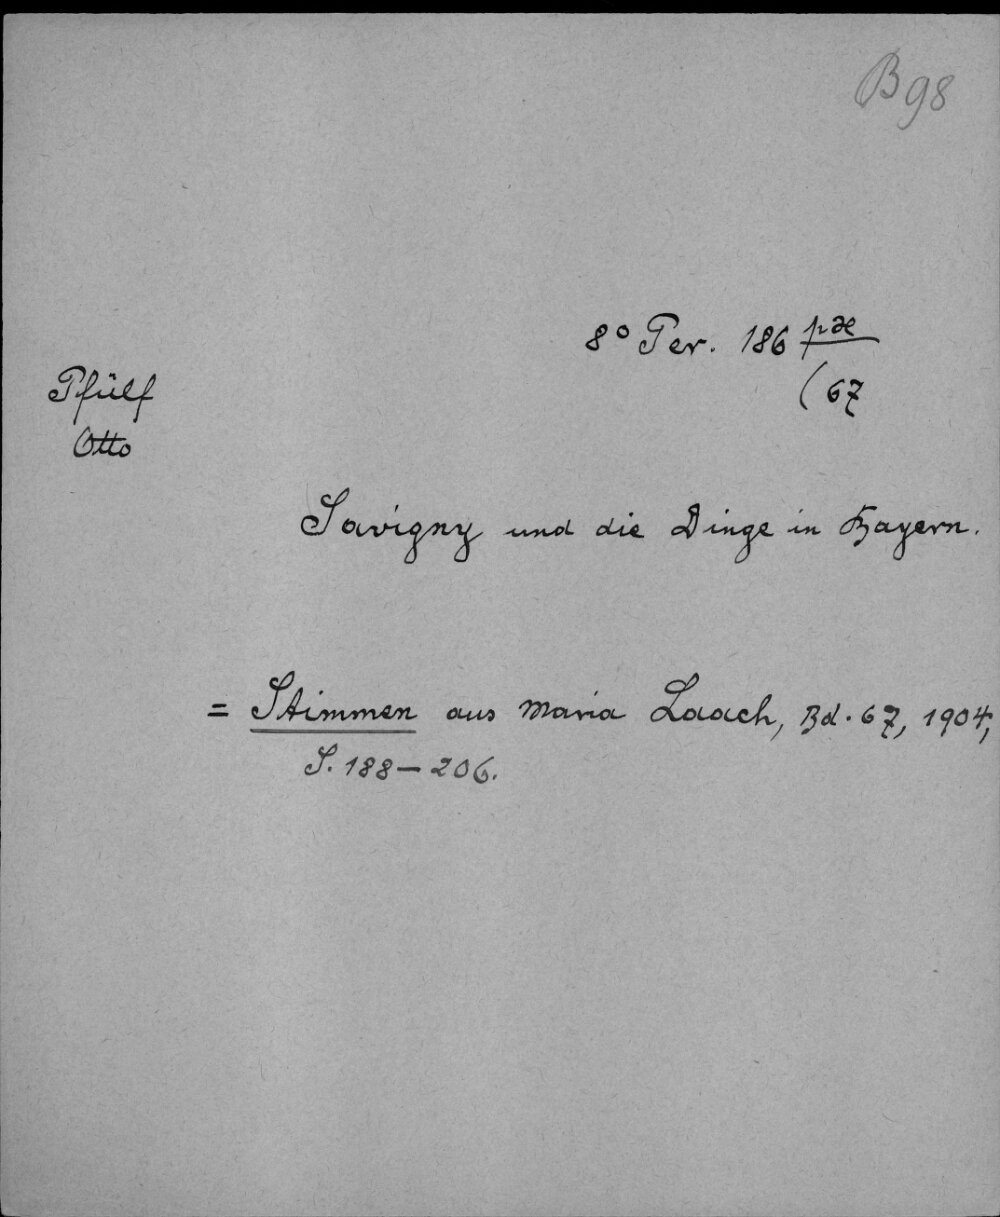 B 98
8° Per. 186 pæ
(67
Pfülf
Otto
Savigny und die Dinge in Bayern.
= Stimmen aus Maria Laach, Bd. 67, 1904,
S. 188–206.